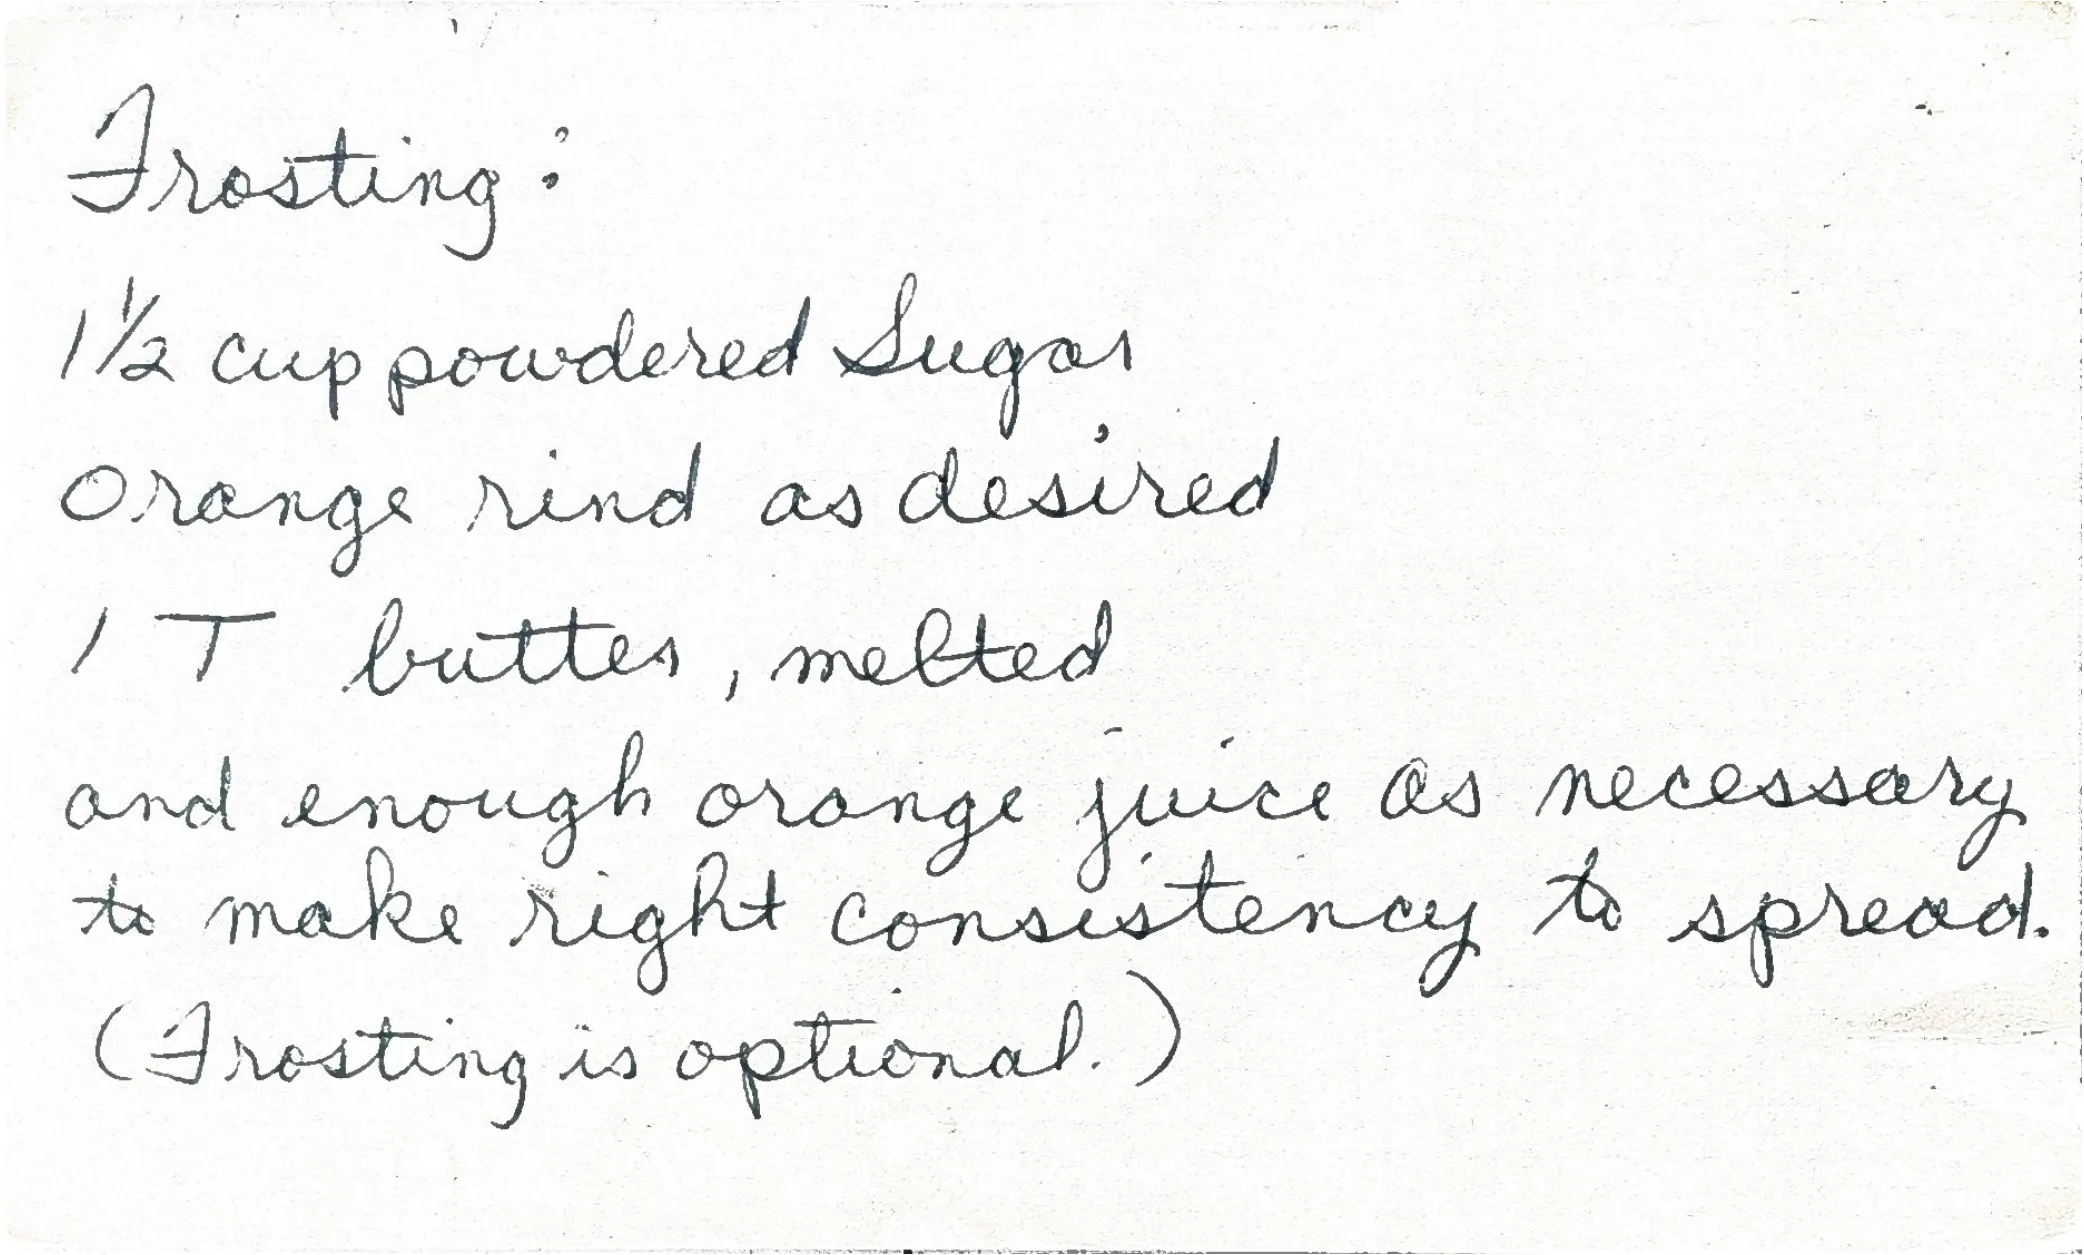 Frosting:
1 1/2 cup powdered Sugar
Orange rind as desired
1 T butter, melted
and enough orange juice as necessary
to make right consistency to spread.
(Frosting is optional.)